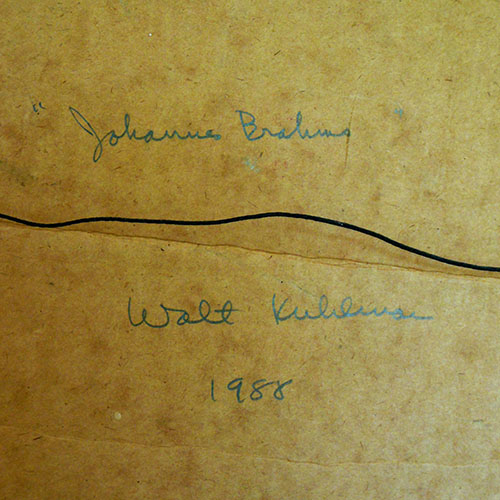 "Johannes Brahms"
Walt Kuhlman
1988